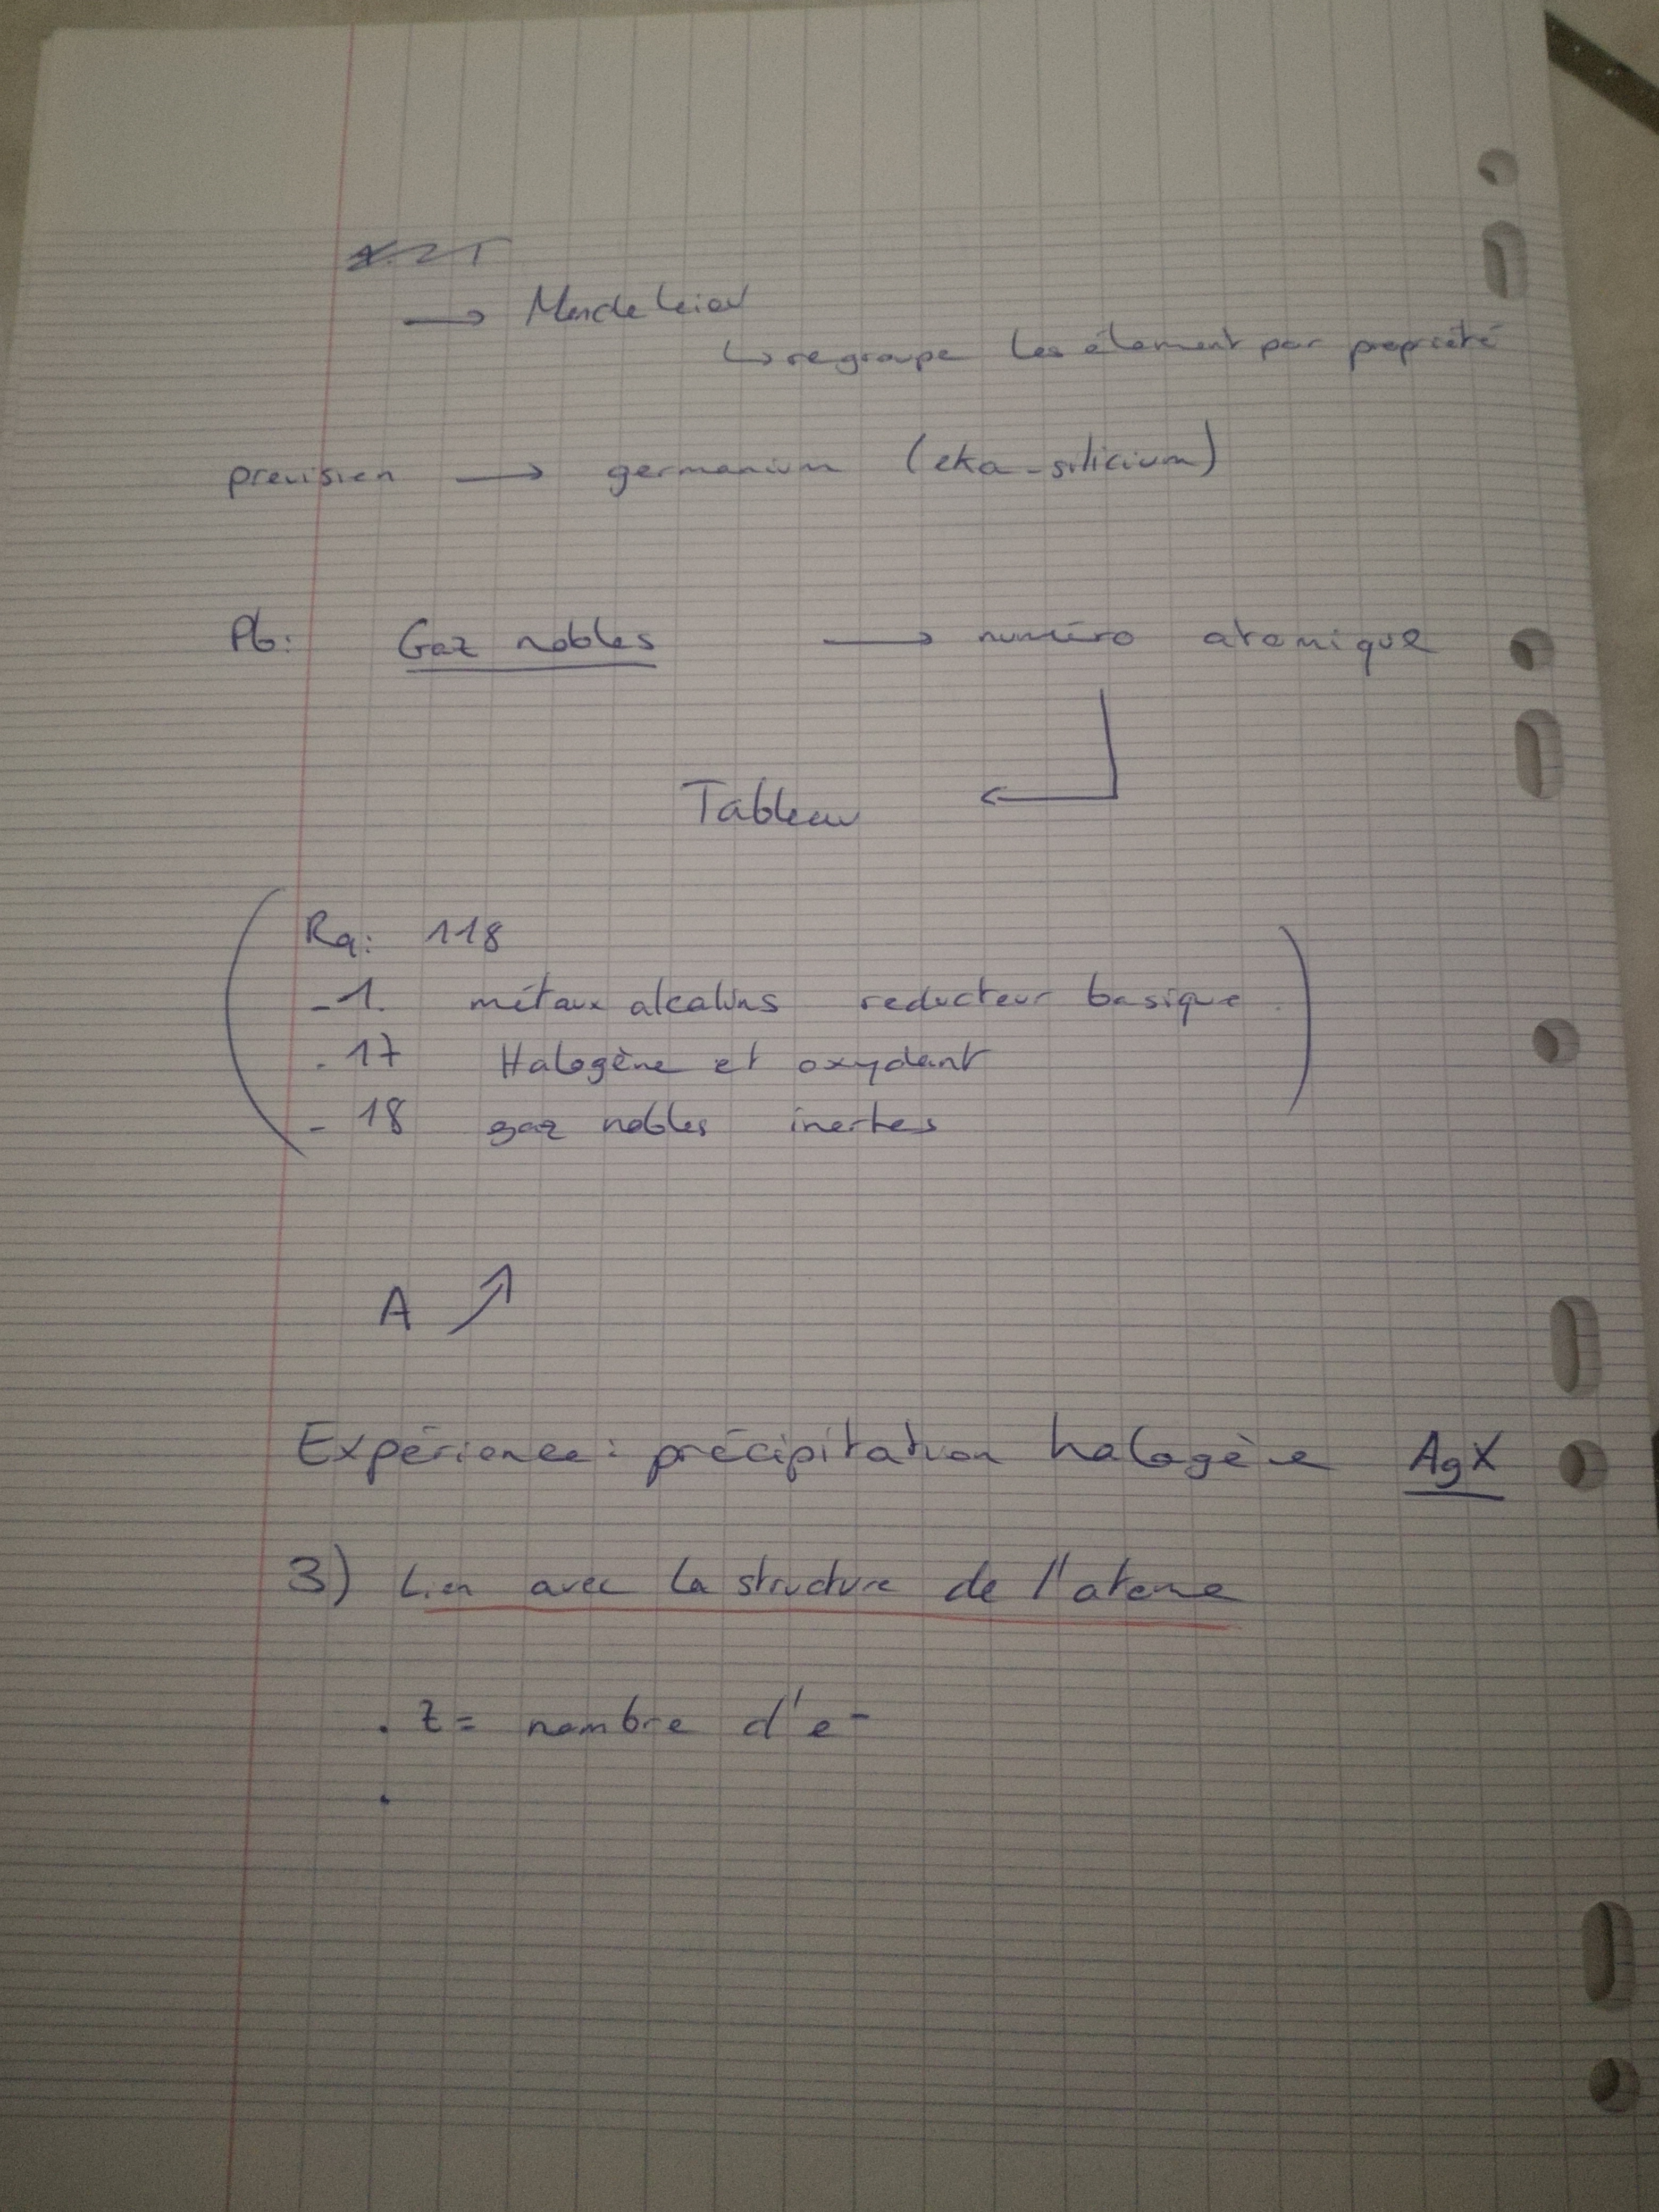 → Mendeleiev
↳ regroupe les élement par propriété
prevision → germanium (eka-silicium)
Pb: Gaz nobles → numéro atomique
Tableau ←
Rq: 118
-1. métaux alcalins reducteur basique.
- 17 Halogène et oxydant
- 18 gaz nobles inertes
A ↗
Expérience: précipitation halogène AgX
3) Lien avec la structure de l'atome
. Z = nombre d'e-
.